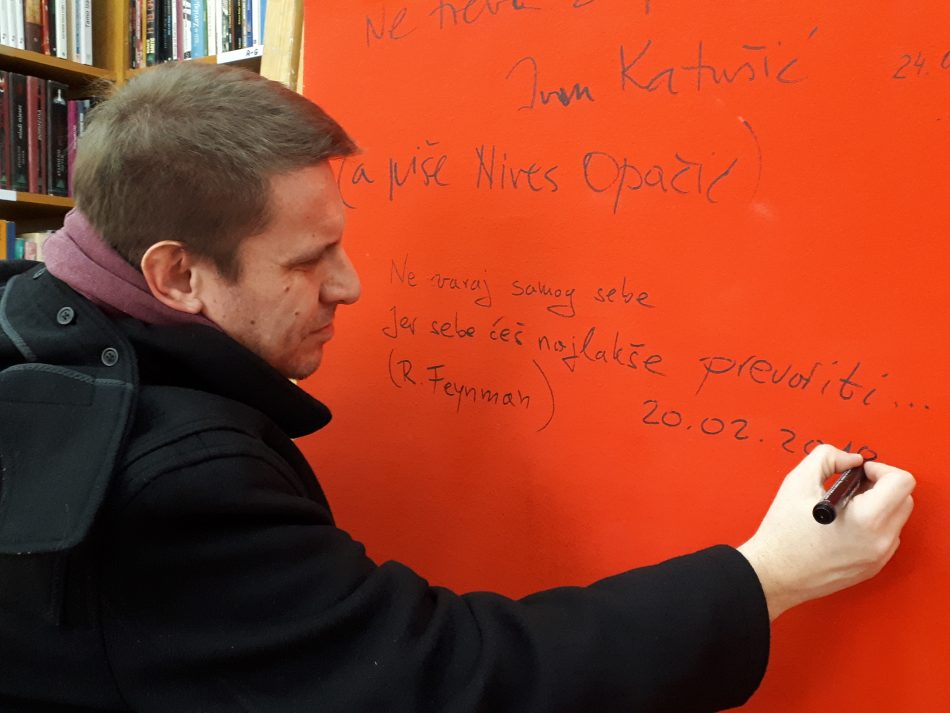 A-G
Ne treba
Ivan Katušić
24.
(a piše Nives Opačić)
Ne varaj samog sebe
Jer sebe ćeš najlakše prevariti...
(R. Feynman)
20.02.